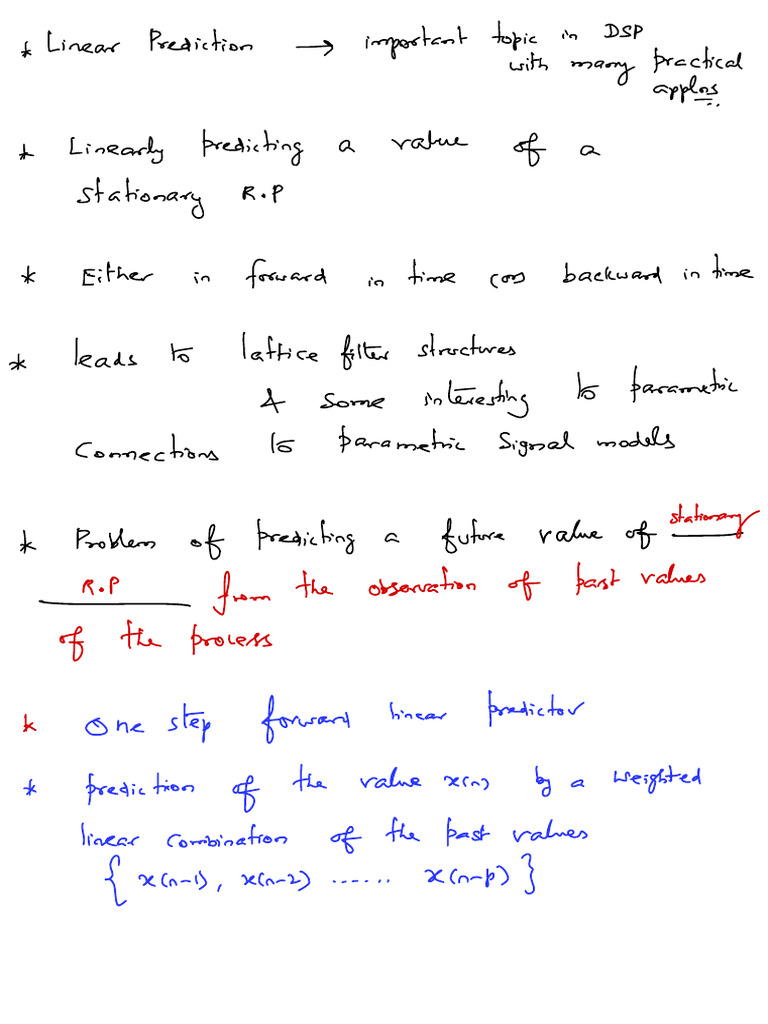 * Linear Prediction → important topic in DSP
with many practical
applns
* Linearly predicting a value of a
stationary R.P
* Either in forward in time (or) backward in time
* leads to lattice filter structures
& some interesting to parametric
Connections to parametric Signal models
* Problem of predicting a future value of stationary
R.P from the observation of past values
of the process
* One step forward linear predictor
* prediction of the value x(n) by a weighted
linear combination of the past values
{ x(n-1), x(n-2) ...... x(n-p) }